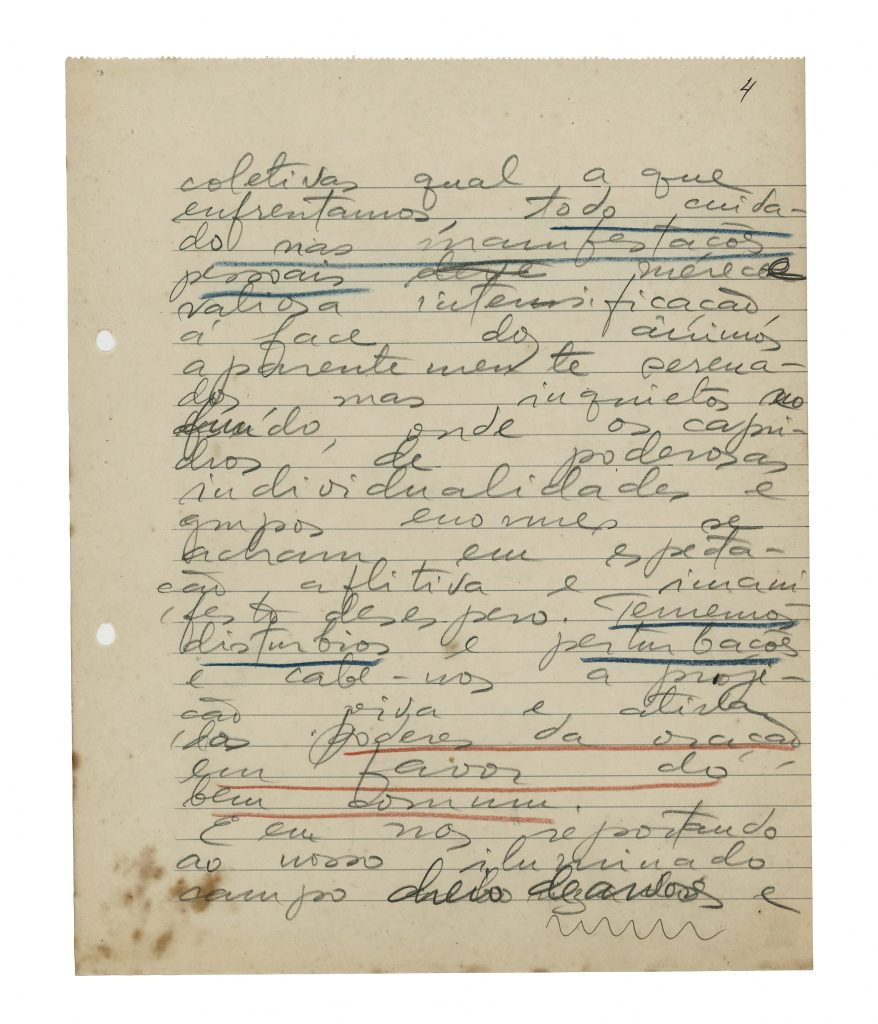 4
coletivas qual a que
enfrentamos, todo cuida-
do nas manifestações
pessoais deve merece
valiosa intensificação
á face dos ânimos
aparentemente serena-
dos mas inquietos no
fundo, onde os capri-
chos de poderosas
individualidades e
grupos enormes se
acham em especta-
ção aflitiva e imani
festo desespero. Tememos
disturbios e perturbações
e cabe-nos a proje-
ção viva e ativa
dos poderes da oração
em favor do
bem comum.
E em nos reportando
ao nosso iluminado
campo cheio de e